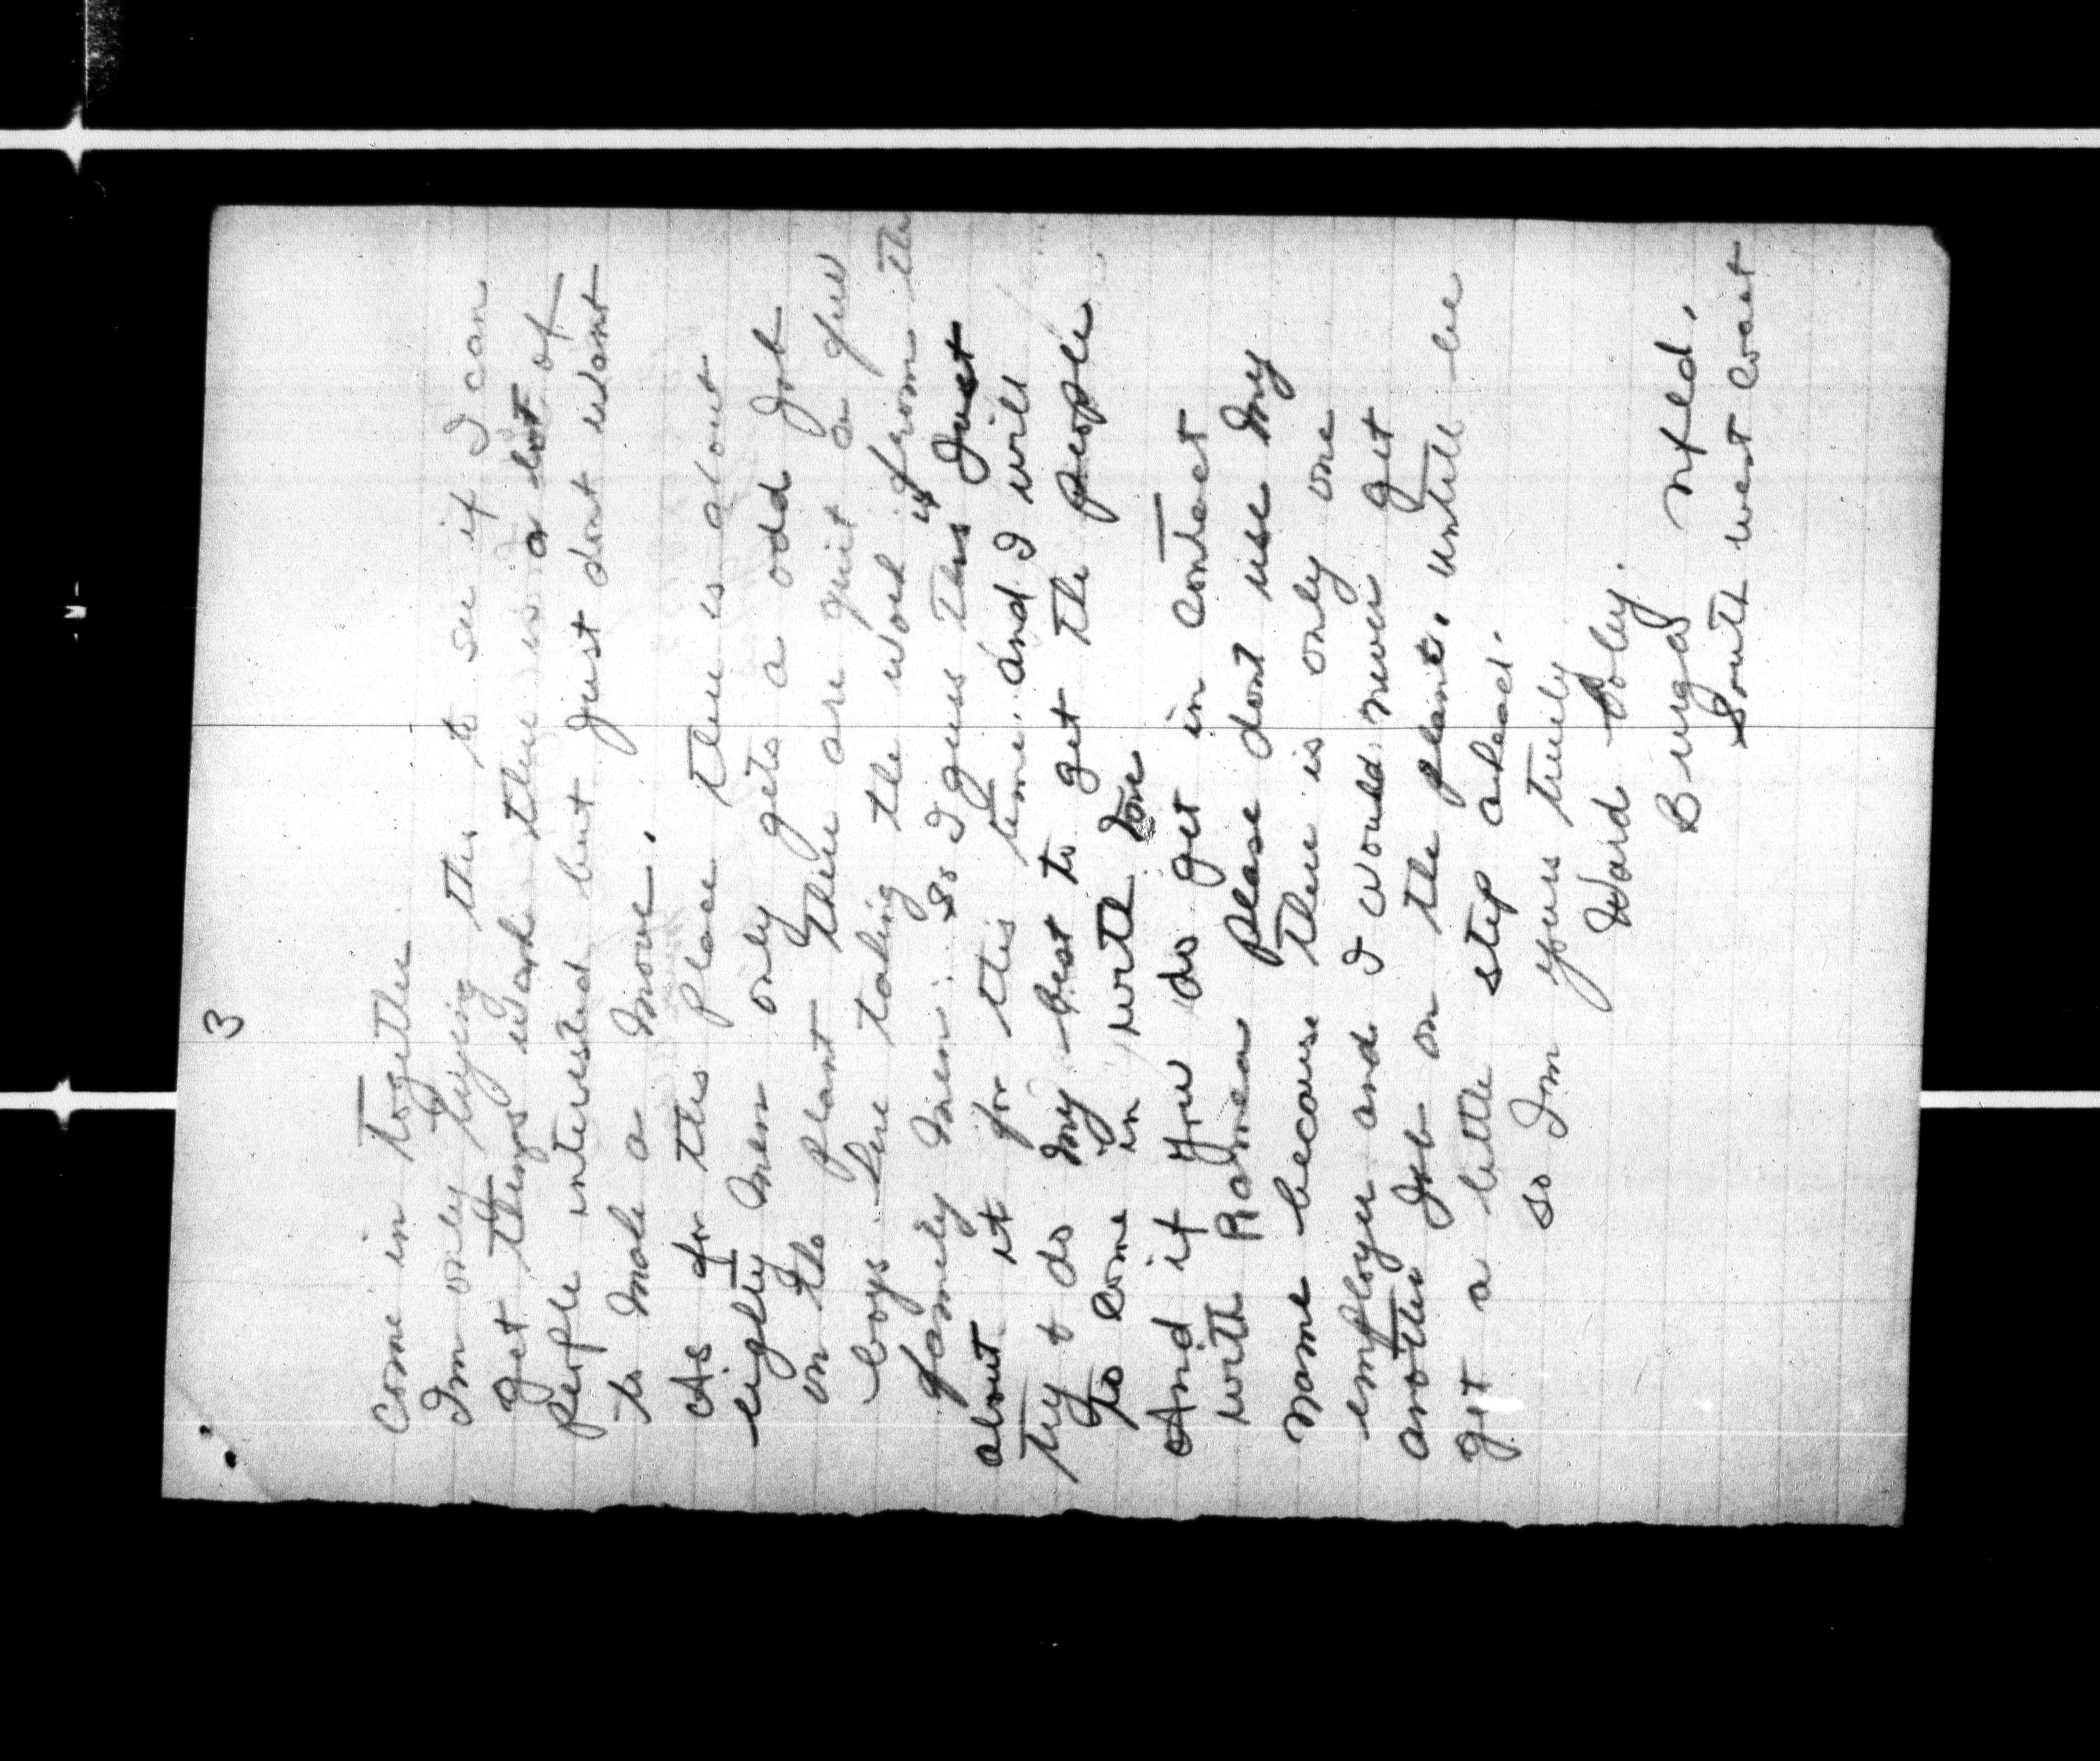 3
Come in together
Im only trying this to see if I can
get things worke there is a lot of
people interested but just dont want
to make a move.
As for this place there is about
eighty men only gets a odd Job
on the plant There are quit a few
boys here taking the work from the
family men. So I guess This is Just
about it for this time. and I will
try & do my best to get the people
to come in with
And if you do get in contact
with Ramea please dont use my
name because there is only one
employer and I would never get
another Job on the plant. untill we
get a little step ahead.
so Im yours truly
Ward
Burgeo Nfld.
South west Coast